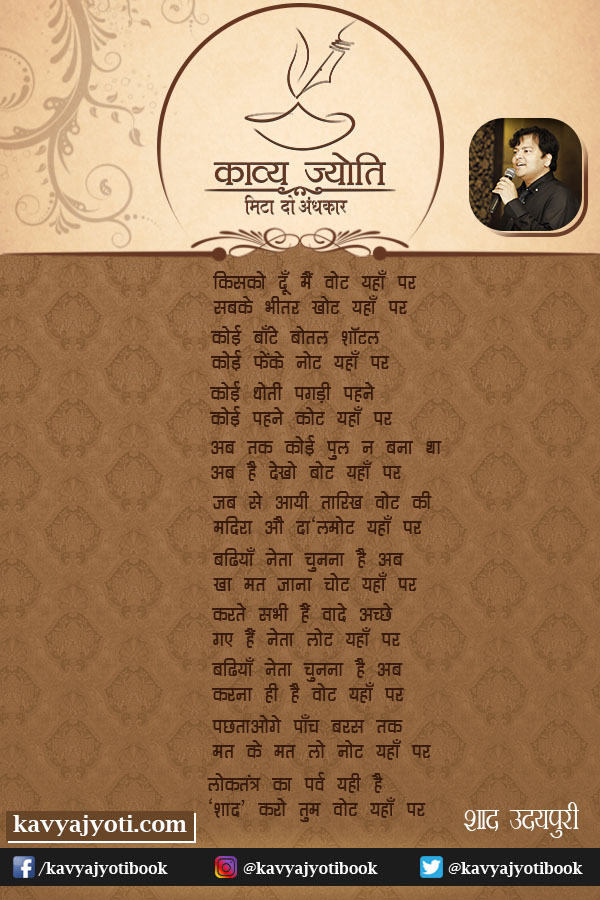 काव्य ज्योति
मिटा दो अंधकार
किसको दूँ मैं वोट यहाँ पर
सबके भीतर खोट यहाँ पर
कोई बाँटे बोतल शॉटल
कोई फेंके नोट यहाँ पर
कोई धोती पगड़ी पहने
कोई पहने कोट यहाँ पर
अब तक कोई पुल न बना था
अब है देखो बोट यहाँ पर
जब से आयी तारिख वोट की
मदिरा औ दा‘लमोट यहाँ पर
बढियाँ नेता चुनना है अब
खा मत जाना चोट यहाँ पर
करते सभी हैं वादे अच्छे
गए हैं नेता लोट यहाँ पर
बढियाँ नेता चुनना है अब
करना ही है वोट यहाँ पर
पछताओगे पाँच बरस तक
मत के मत लो नोट यहाँ पर
लोकतंत्र का पर्व यही है
‘शाद’ करो तुम वोट यहाँ पर
शाद उदयपुरी
kavyajyoti.com
/kavyajyotibook @kavyajyotibook @kavyajyotibook